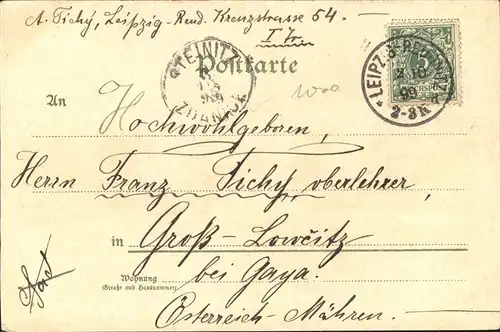 A. Tichý, Leipzig-Reud. Kreuzstrasse 54.
I Tr.
STEINITZ
ZDANICE
Postkarte
1000
LEIPZIG-REUDNITZ
99
2-3N
5
An
Hochwohlgeboren,
Herrn Franz Tichý, oberlehrer,
in Groß-Lowčitz
Wohnung
(Straße und Hausnummer)
bei Gaya.
Österreich-Mähren.